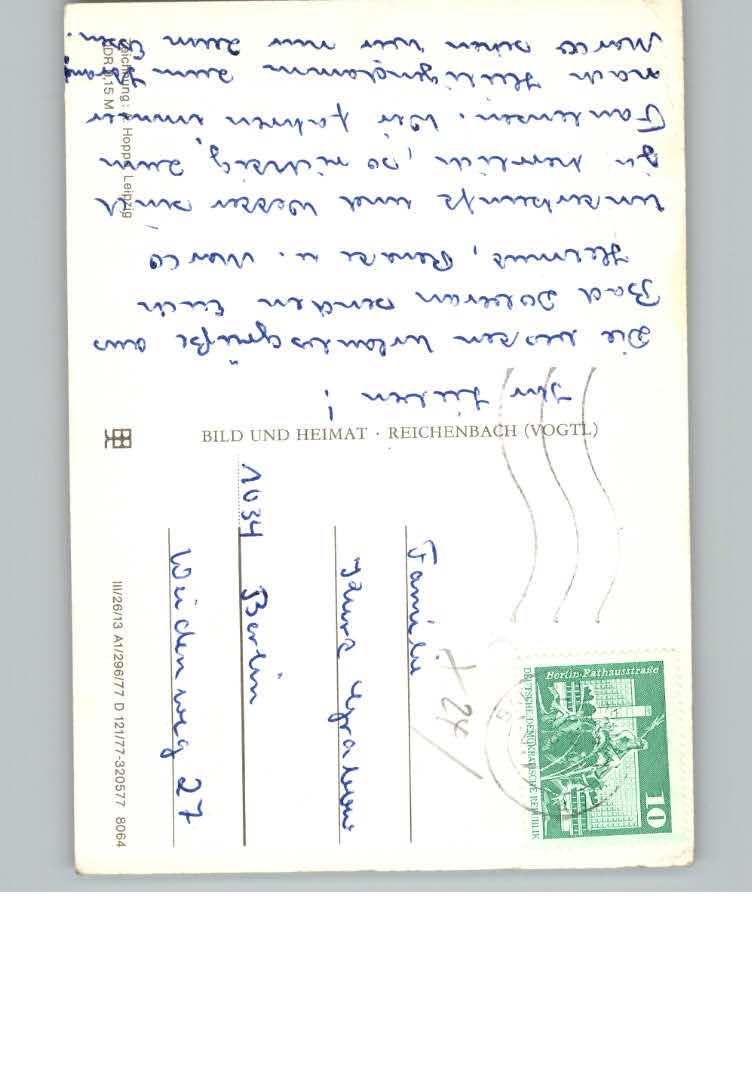 Ihr Lieben!
Die besten Urlaubsgrüße aus
Bad Doberan senden Euch
u. Marco
Unterkunft und Essen sind
herrlich, so richtig zum
Faulenzen. Wir fahren immer
nach Heiligendamm zum Strand
Marco sehen wir nur zum Essen.
Zeichnung: Hoppe, Leipzig
DDR 0,15 M
BILD UND HEIMAT · REICHENBACH (VOGTL)
Familie
Kurz
1034 Berlin
Weidenweg 27
+ 24
III/26/13 A1/296/77 D 121/77-320577 8064
Berlin, Rathausstraße
DEUTSCHE DEMOKRATISCHE REPUBLIK
10